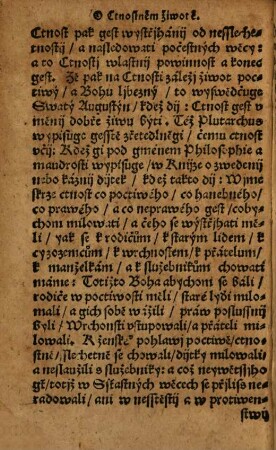 O Ctnostném žiwotě.
Ctnost pak gest wystřjhánij od nesslechetnostij / a
tnostij / a následowati počestných wěcy: a
a to Ctnostij wlastnij powinnost a konec
gest. Že pak na Ctnosti záležj žiwot poctiwý /
wý / a Bohu ljbezný / to wyswědčuge
Swatý Augustýn / když dij: Ctnost gest v
měnij dobře žiwu býti. Též Plutarchus
wypisuge gesstě zřetedlněgi / čemu ctnost
včij: Kdež gi pod gménem Philosophie a
maudrosti wypisuge / w Knijze o zwedenij
nebo kázni djtek / kdež takto dij: My ně
skrze ctnost co poctiwého / co hanebného /
co prawého / a co neprawého gest / cobychom
chom milowati / a čeho se wystřjhati měli /
li / yak se k rodičům / k starým lidem / k
cyzozemcům / k wrchnostem / k přátelům /
k manželkám / a k služebníkům chowati
máme: Totižto Boha abychom se báli /
rodiče w poctiwosti měli / staré lydi milo-
mali / a gich sobě wážili / práw poslussni
byli / Wrchnosti vstupowali / a přátely mi
lowali. K ženské pohlawij poctiwě / ctno-
stně / sslechetně se chowali / djtky milowali /
a neslaužili s služebníky: a což neywětssýho
gt / totiž w Sstiastných wěcech se přjliss ne-
radowali / ani w nesstěstij a w protiwen-
stwij